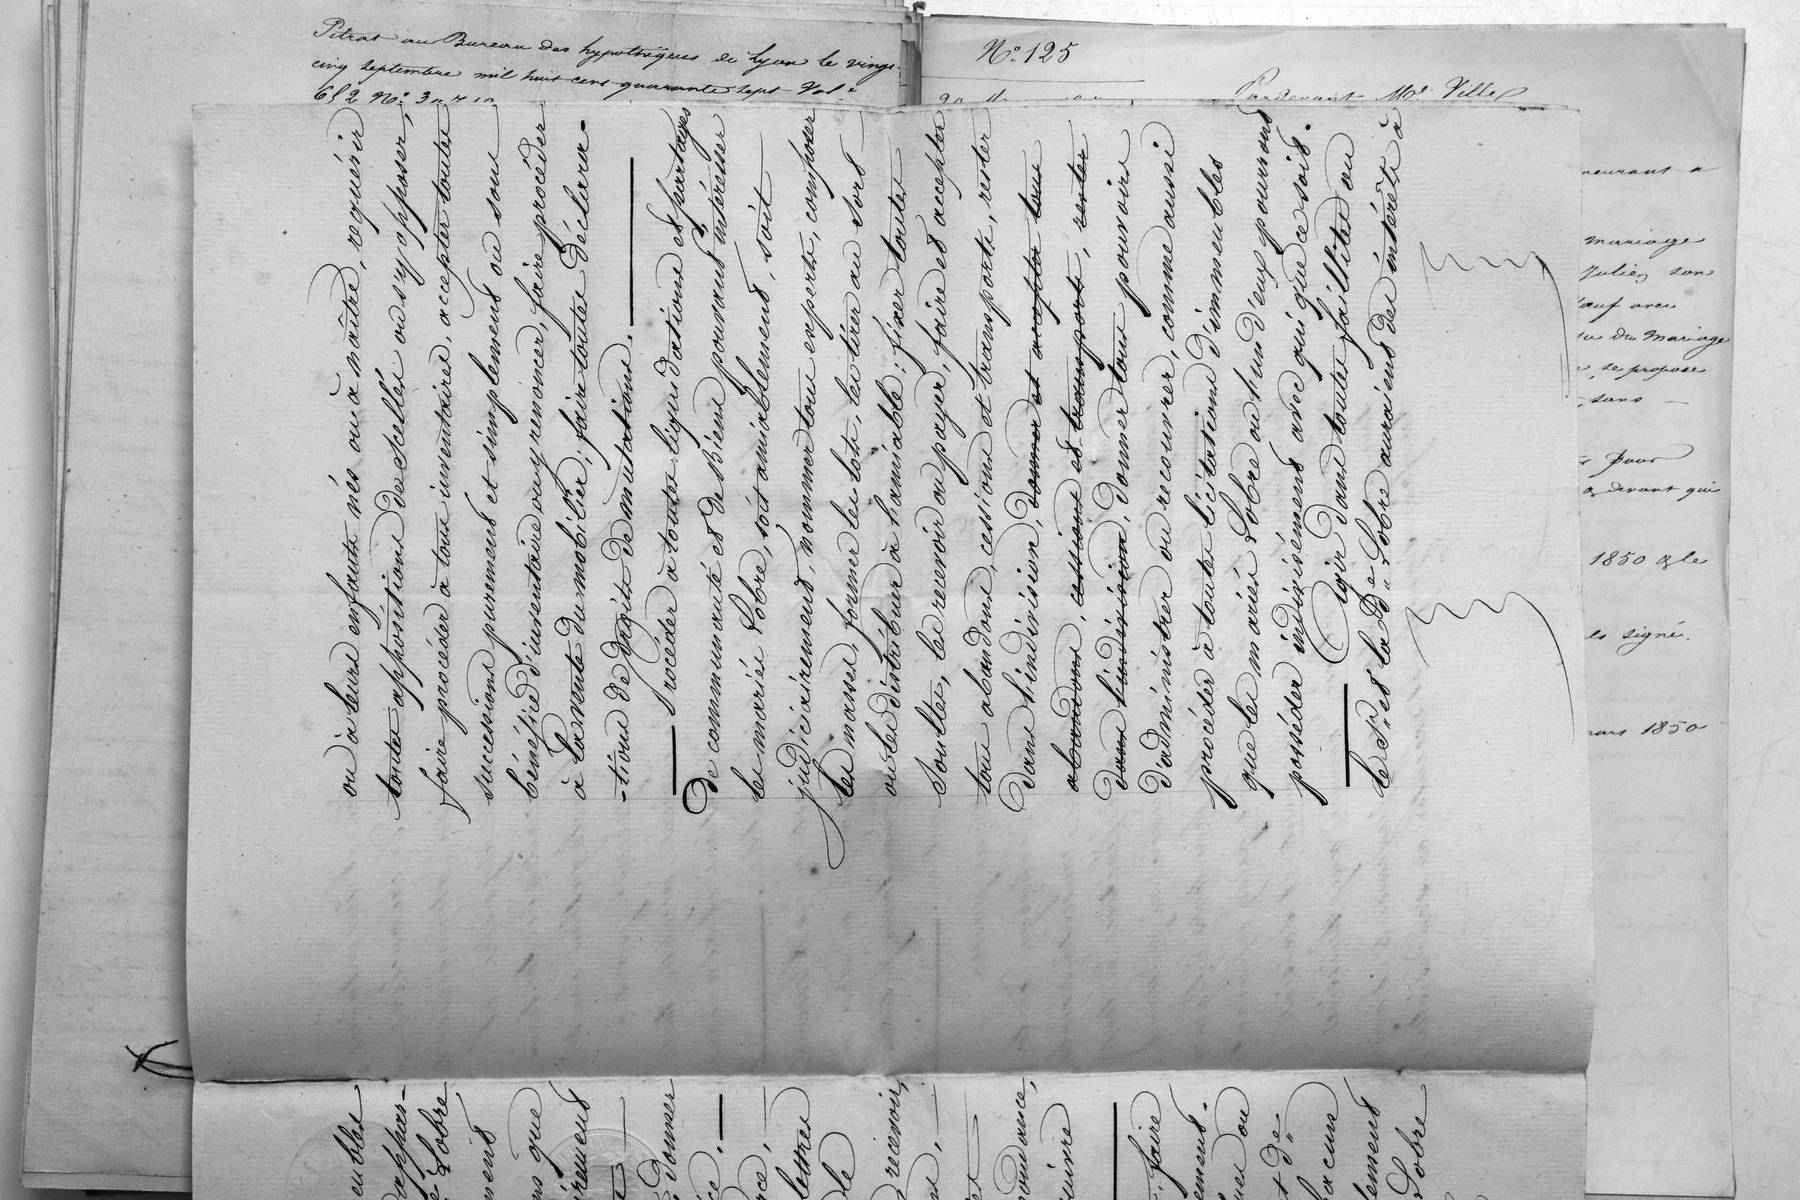 Pitrat au Bureau des hypothèques de Lyon le vingt
cinq septembre mil huit cent quarante sept Vol.e
652 N.o
N.o 125
Pardevant M.e
ou à leurs enfants nés ou à naître, requérir
toutes appositions de scellés ou s'y opposer;
faire procéder à tous inventaires, accepter toutes
successions purement et simplement ou sous
bénéfice d'inventaire ou y renoncer, faire procéder
à la vente du mobilier; faire toutes déclara-
-tions de droits de mutations.
Procéder à toutes liquidations et partages
de communauté et de biens pouvant intéresser
les mariés Sobre, soit amiablement, soit
judiciairement, nommer tous experts, composer
les masses, former les lots, les tirer au sort
ou les distribuer à l'amiable; fixer toutes
soultes, les recevoir ou payer, faire et accepter
tous abandons, cessions et transports, rester
dans l'indivision, donner et accepter tous
abandons, cessions et transports, rester
dans l'indivision, donner tous pouvoirs
d'administrer ou recouvrer, comme aussi
procéder à toutes licitations d'immeubles
que les mariés Sobre ou l'un d'eux pourront
posséder indivisément avec qui que ce soit.
Agir dans toutes faillites où
le S.r et la d.e Sobre auraient des intérêts à
meurant a
mariage
Julien son
avec
du mariage
, se propose
, sans
pour
devant qui
1850 & le
signé.
mars 1850
eubles
appar-
Sobre
ment
ns que
rement
donner
ce.
rce,
lettres
le
recevoir,
et
uivre
faire
ement.
ou
t de
hacun
lement
Sobre